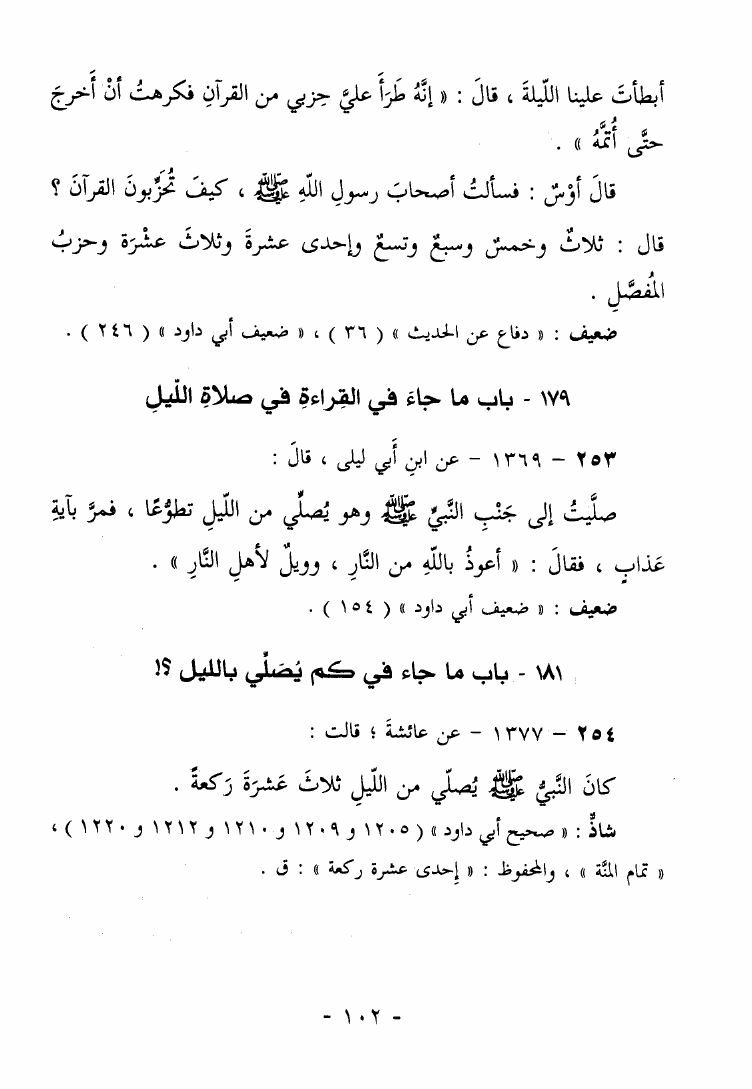 أبطأتَ علينا اللّيلةَ ، قالَ : « إنَّهُ طَرَأَ عليَّ حِزبي من القرآنِ فكرهتُ أنْ أَخرجَ
حتَّى أُتمَّهُ » .
قالَ أوْسٌ : فسألتُ أصحابَ رسولِ اللّهِ ﷺ ، كيفَ تُحَزِّبونَ القرآنَ ؟
قال : ثلاثٌ وخمسٌ وسبعٌ وتسعٌ وإحدى عشرةَ وثلاثَ عشْرَة وحزبُ
المُفصَّلِ .
ضعيف : « دفاع عن الحديث » ( ٣٦ ) ، « ضعيف أبي داود » ( ٢٤٦ ) .
١٧٩ - باب ما جاءَ في القِراءةِ في صلاةِ اللّيلِ
٢٥٣ – ١٣٦٩ – عن ابنِ أَبي ليلى ، قالَ :
صلَّيتُ إلى جَنْبِ النَّبيِّ ﷺ وهو يُصلِّي من اللّيلِ تطوُّعًا ، فمرَّ بآيةِ
عَذابٍ ، فقالَ : « أعوذُ باللّهِ من النَّارِ ، وويلٌ لأهلِ النَّارِ » .
ضعيف : « ضعيف أبي داود » ( ١٥٤ ) .
١٨١ - باب ما جاء في كم يُصَلِّي بالليل ؟!
٢٥٤ – ١٣٧٧ – عن عائشةَ ؛ قالت :
كانَ النَّبيُّ ﷺ يُصلّي من اللّيلِ ثلاثَ عَشرَةَ رَكعةً .
شاذٌّ : « صحيح أبي داود » ( ١٢٠٥ و ١٢٠٩ و ١٢١٠ و ١٢١٢ و ١٢٢٠ ) ،
« تمام المنَّة » ، والمحفوظ : « إحدى عشرة ركعة » : ق .
- ١٠٢ -